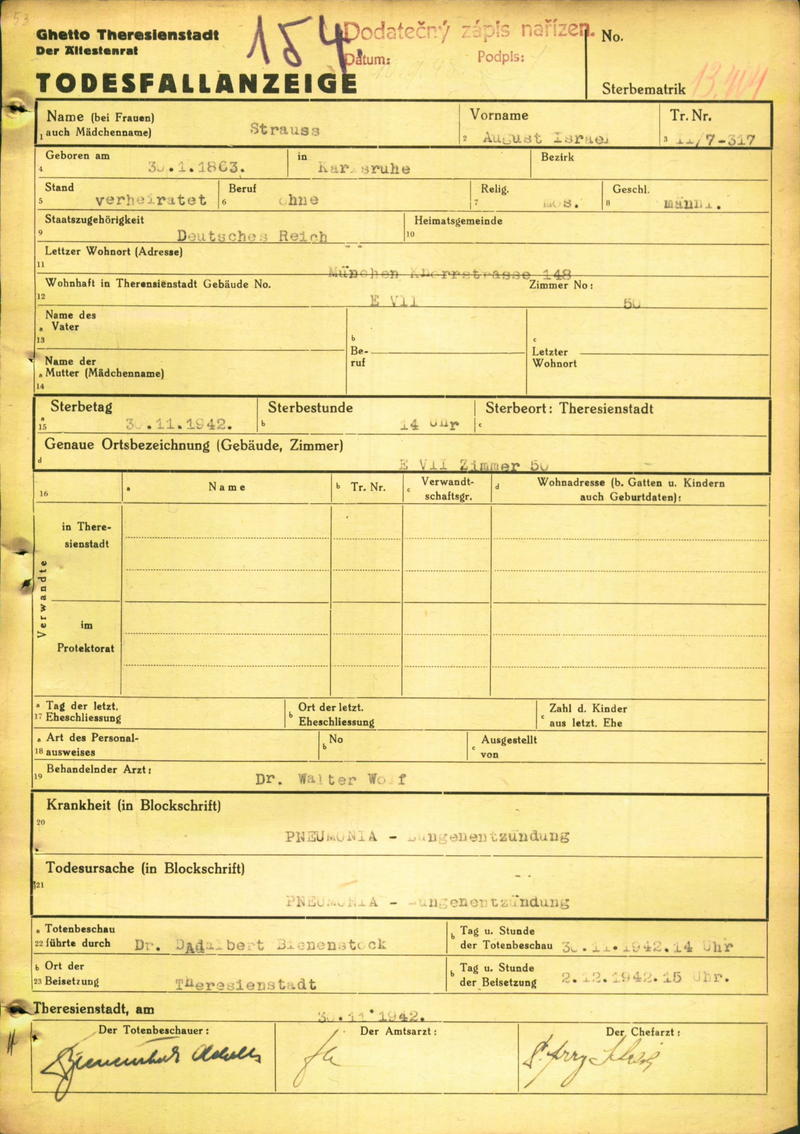 53
Ghetto Theresienstadt
Der Ältestenrat
184
Dodatečný zápis nařízen.
Datum: Podpis:
No.
TODESFALLANZEIGE
Sterbematrik
Name (bei Frauen) Vorname Tr. Nr.
1 auch Mädchenname) Strauss 2 August Israel 3 II/7-317
Geboren am in Bezirk
4 30.1.1863. Karlsruhe
Stand Beruf Relig. Geschl.
5 verheiratet 6 ohne 7 mos. 8 männl.
Staatszugehörigkeit Heimatsgemeinde
9 Deutsches Reich 10
Lettzer Wohnort (Adresse)
11 München Knorrstrasse 148
Wohnhaft in Theresienstadt Gebäude No. Zimmer No:
12 E VII 50
Name des
a Vater
13
b Beruf
c Letzter Wohnort
Name der
a Mutter (Mädchenname)
14
Sterbetag Sterbestunde Sterbeort: Theresienstadt
a 15 30.11.1942. b 14 Uhr c
Genaue Ortsbezeichnung (Gebäude, Zimmer)
d E VII Zimmer 50
16 a Name b Tr. Nr. c Verwandt-schaftsgr. d Wohnadresse (b. Gatten u. Kindern auch Geburtdaten):
Verwandte
in There-
sienstadt
im
Protektorat
a Tag der letzt. b Ort der letzt. c Zahl d. Kinder
17 Eheschliessung Eheschliessung aus letzt. Ehe
a Art des Personal- b No c Ausgestellt
18 ausweises von
Behandelnder Arzt:
19 Dr. Walter Wolf
Krankheit (in Blockschrift)
20
PNEUMONIA - Lungenentzündung
Todesursache (in Blockschrift)
21
PNEUMONIA - Lungenentzündung
a Totenbeschau b Tag u. Stunde
22 führte durch Dr. Adalbert Bienenstock der Totenbeschau 30.11.1942.14 Uhr
b Ort der b Tag u. Stunde
23 Beisetzung Theresienstadt der Beisetzung 2.12.1942.15 Uhr.
Theresienstadt, am 30.11.1942.
Der Totenbeschauer: Der Amtsarzt: Der Chefarzt: